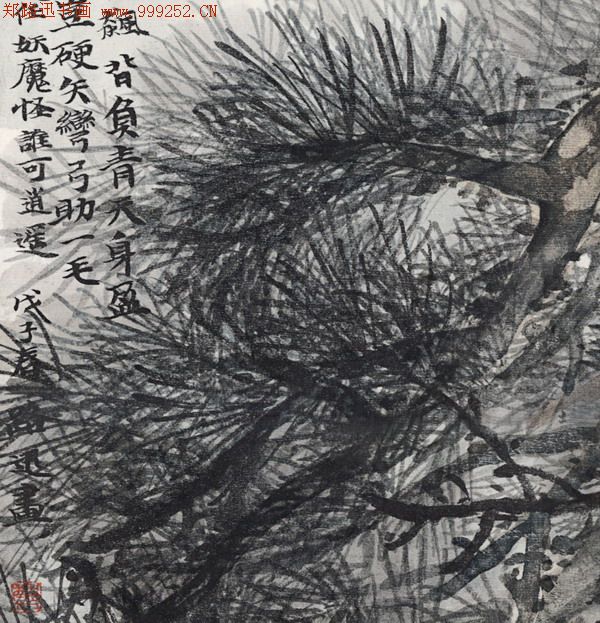 郑路迅书画 www.999252.CN
背負青天身盈
硬矢彎弓助一毛
妖魔怪誰可逍遥 戊子春 路迅畫